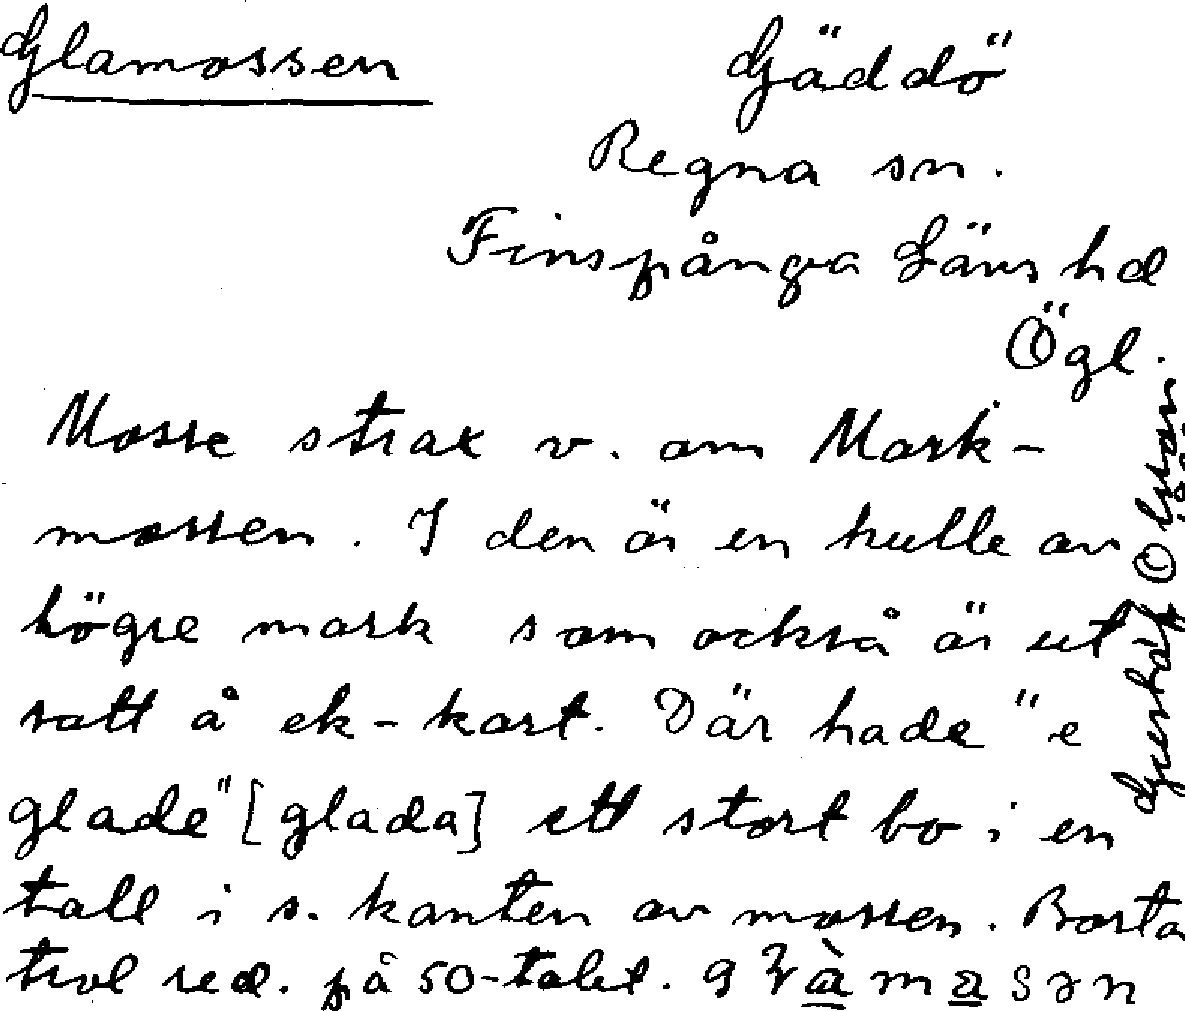 Glamossen
Gäddö
Regna sn.
Finspånga Läns hd
Ögl.
Mosse strax v. om Mark-
mossen. I den är en kulle av
högre mark som också är ut
satt å ek-kart. Där hade "e
glade" [glada] ett stort bo i en
tall i s. kanten av mossen. Borta
trol red. på 50-talet.
Olsson